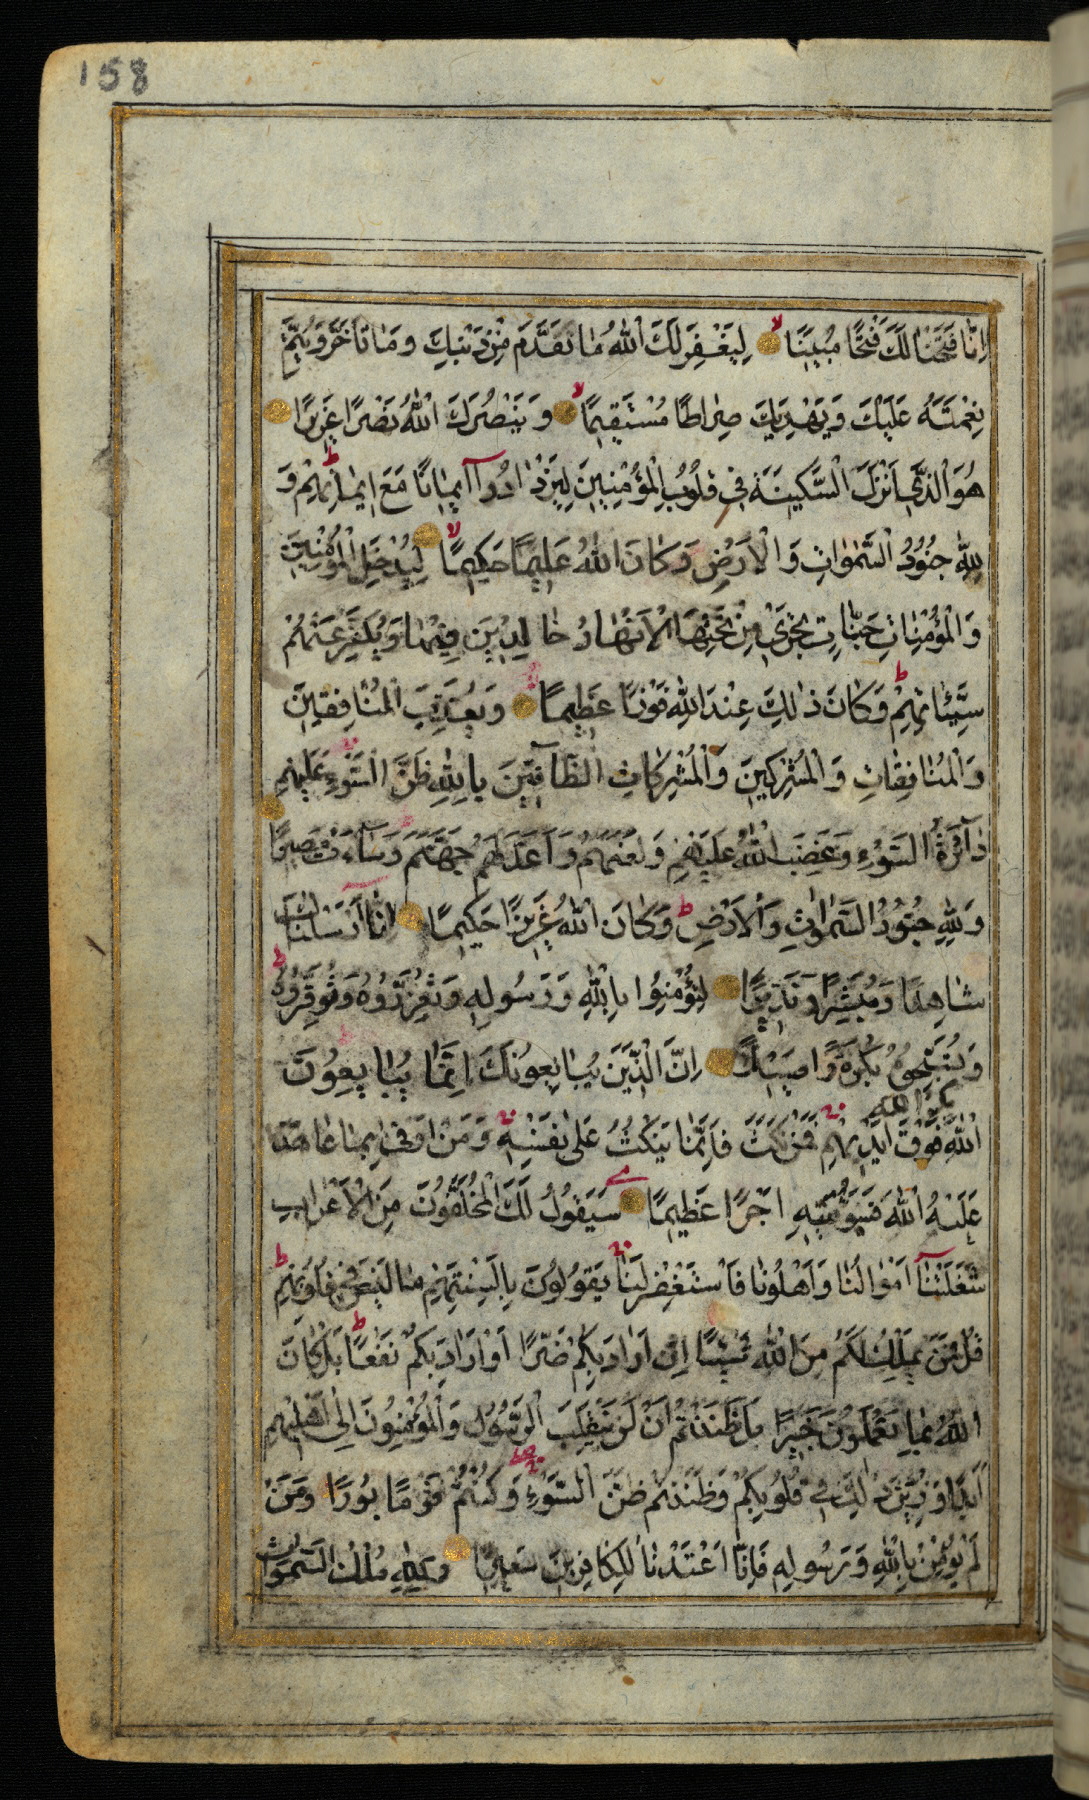 158
اِنَّا فَتَحْنَا لَكَ فَتْحًا مُبِينًا لا لِيَغْفِرَ لَكَ اللّٰهُ مَا تَقَدَّمَ مِنْ ذَنْبِكَ وَمَا تَاَخَّرَ وَيُتِمَّ
نِعْمَتَهُ عَلَيْكَ وَيَهْدِيَكَ صِرَاطًا مُسْتَقِيمًا لا وَيَنْصُرَكَ اللّٰهُ نَصْرًا عَزِيزًا
هُوَ الَّذِى اَنْزَلَ السَّكِينَةَ فِى قُلُوبِ الْمُؤْمِنِينَ لِيَزْدَادُوآ اِيمَانًا مَعَ اِيمَانِهِمْ ط وَ
لِلّٰهِ جُنُودُ السَّمٰوَاتِ وَالْاَرْضِ وَكَانَ اللّٰهُ عَلِيمًا حَكِيمًا لا لِيُدْخِلَ الْمُؤْمِنِينَ
وَالْمُؤْمِنَاتِ جَنَّاتٍ تَجْرِى مِنْ تَحْتِهَا الْاَنْهَارُ خَالِدِينَ فِيهَا وَيُكَفِّرَ عَنْهُمْ
سَيِّئَاتِهِمْ ط وَكَانَ ذٰلِكَ عِنْدَ اللّٰهِ فَوْزًا عَظِيمًا وَيُعَذِّبَ الْمُنَافِقِينَ
وَالْمُنَافِقَاتِ وَالْمُشْرِكِينَ وَالْمُشْرِكَاتِ الظَّآنِّينَ بِاللّٰهِ ظَنَّ السَّوْءِ عَلَيْهِمْ
دَآئِرَةُ السَّوْءِ وَغَضِبَ اللّٰهُ عَلَيْهِمْ وَلَعَنَهُمْ وَاَعَدَّ لَهُمْ جَهَنَّمَ وَسَآءَتْ مَصِيرًا
وَلِلّٰهِ جُنُودُ السَّمٰوَاتِ وَالْاَرْضِ ط وَكَانَ اللّٰهُ عَزِيزًا حَكِيمًا اِنَّآ اَرْسَلْنَاكَ
شَاهِدًا وَمُبَشِّرًا وَنَذِيرًا لِتُؤْمِنُوا بِاللّٰهِ وَرَسُولِهِ وَتُعَزِّرُوهُ وَتُوَقِّرُوهُ ط
وَتُسَبِّحُوهُ بُكْرَةً وَاَصِيلًا اِنَّ الَّذِينَ يُبَايِعُونَكَ اِنَّمَا يُبَايِعُونَ
اللّٰهَ يَدُ اللّٰهِ فَوْقَ اَيْدِيهِمْ فَمَنْ نَكَثَ فَاِنَّمَا يَنْكُثُ عَلٰى نَفْسِهِ وَمَنْ اَوْفٰى بِمَا عَاهَدَ
عَلَيْهُ اللّٰهَ فَسَيُؤْتِيهِ اَجْرًا عَظِيمًا سَيَقُولُ لَكَ الْمُخَلَّفُونَ مِنَ الْاَعْرَابِ
شَغَلَتْنَآ اَمْوَالُنَا وَاَهْلُونَا فَاسْتَغْفِرْ لَنَا يَقُولُونَ بِاَلْسِنَتِهِمْ مَا لَيْسَ فِى قُلُوبِهِمْ ط
قُلْ فَمَنْ يَمْلِكُ لَكُمْ مِنَ اللّٰهِ شَيْئًا اِنْ اَرَادَ بِكُمْ ضَرًّا اَوْ اَرَادَ بِكُمْ نَفْعًا ط بَلْ كَانَ
اللّٰهُ بِمَا تَعْمَلُونَ خَبِيرًا بَلْ ظَنَنْتُمْ اَنْ لَنْ يَنْقَلِبَ الرَّسُولُ وَالْمُؤْمِنُونَ اِلٰى اَهْلِيهِمْ
اَبَدًا وَزُيِّنَ ذٰلِكَ فِى قُلُوبِكُمْ وَظَنَنْتُمْ ظَنَّ السَّوْءِ وَكُنْتُمْ قَوْمًا بُورًا وَمَنْ
لَمْ يُؤْمِنْ بِاللّٰهِ وَرَسُولِهِ فَاِنَّا اَعْتَدْنَا لِلْكَافِرِينَ سَعِيرًا وَلِلّٰهِ مُلْكُ السَّمٰوَاتِ